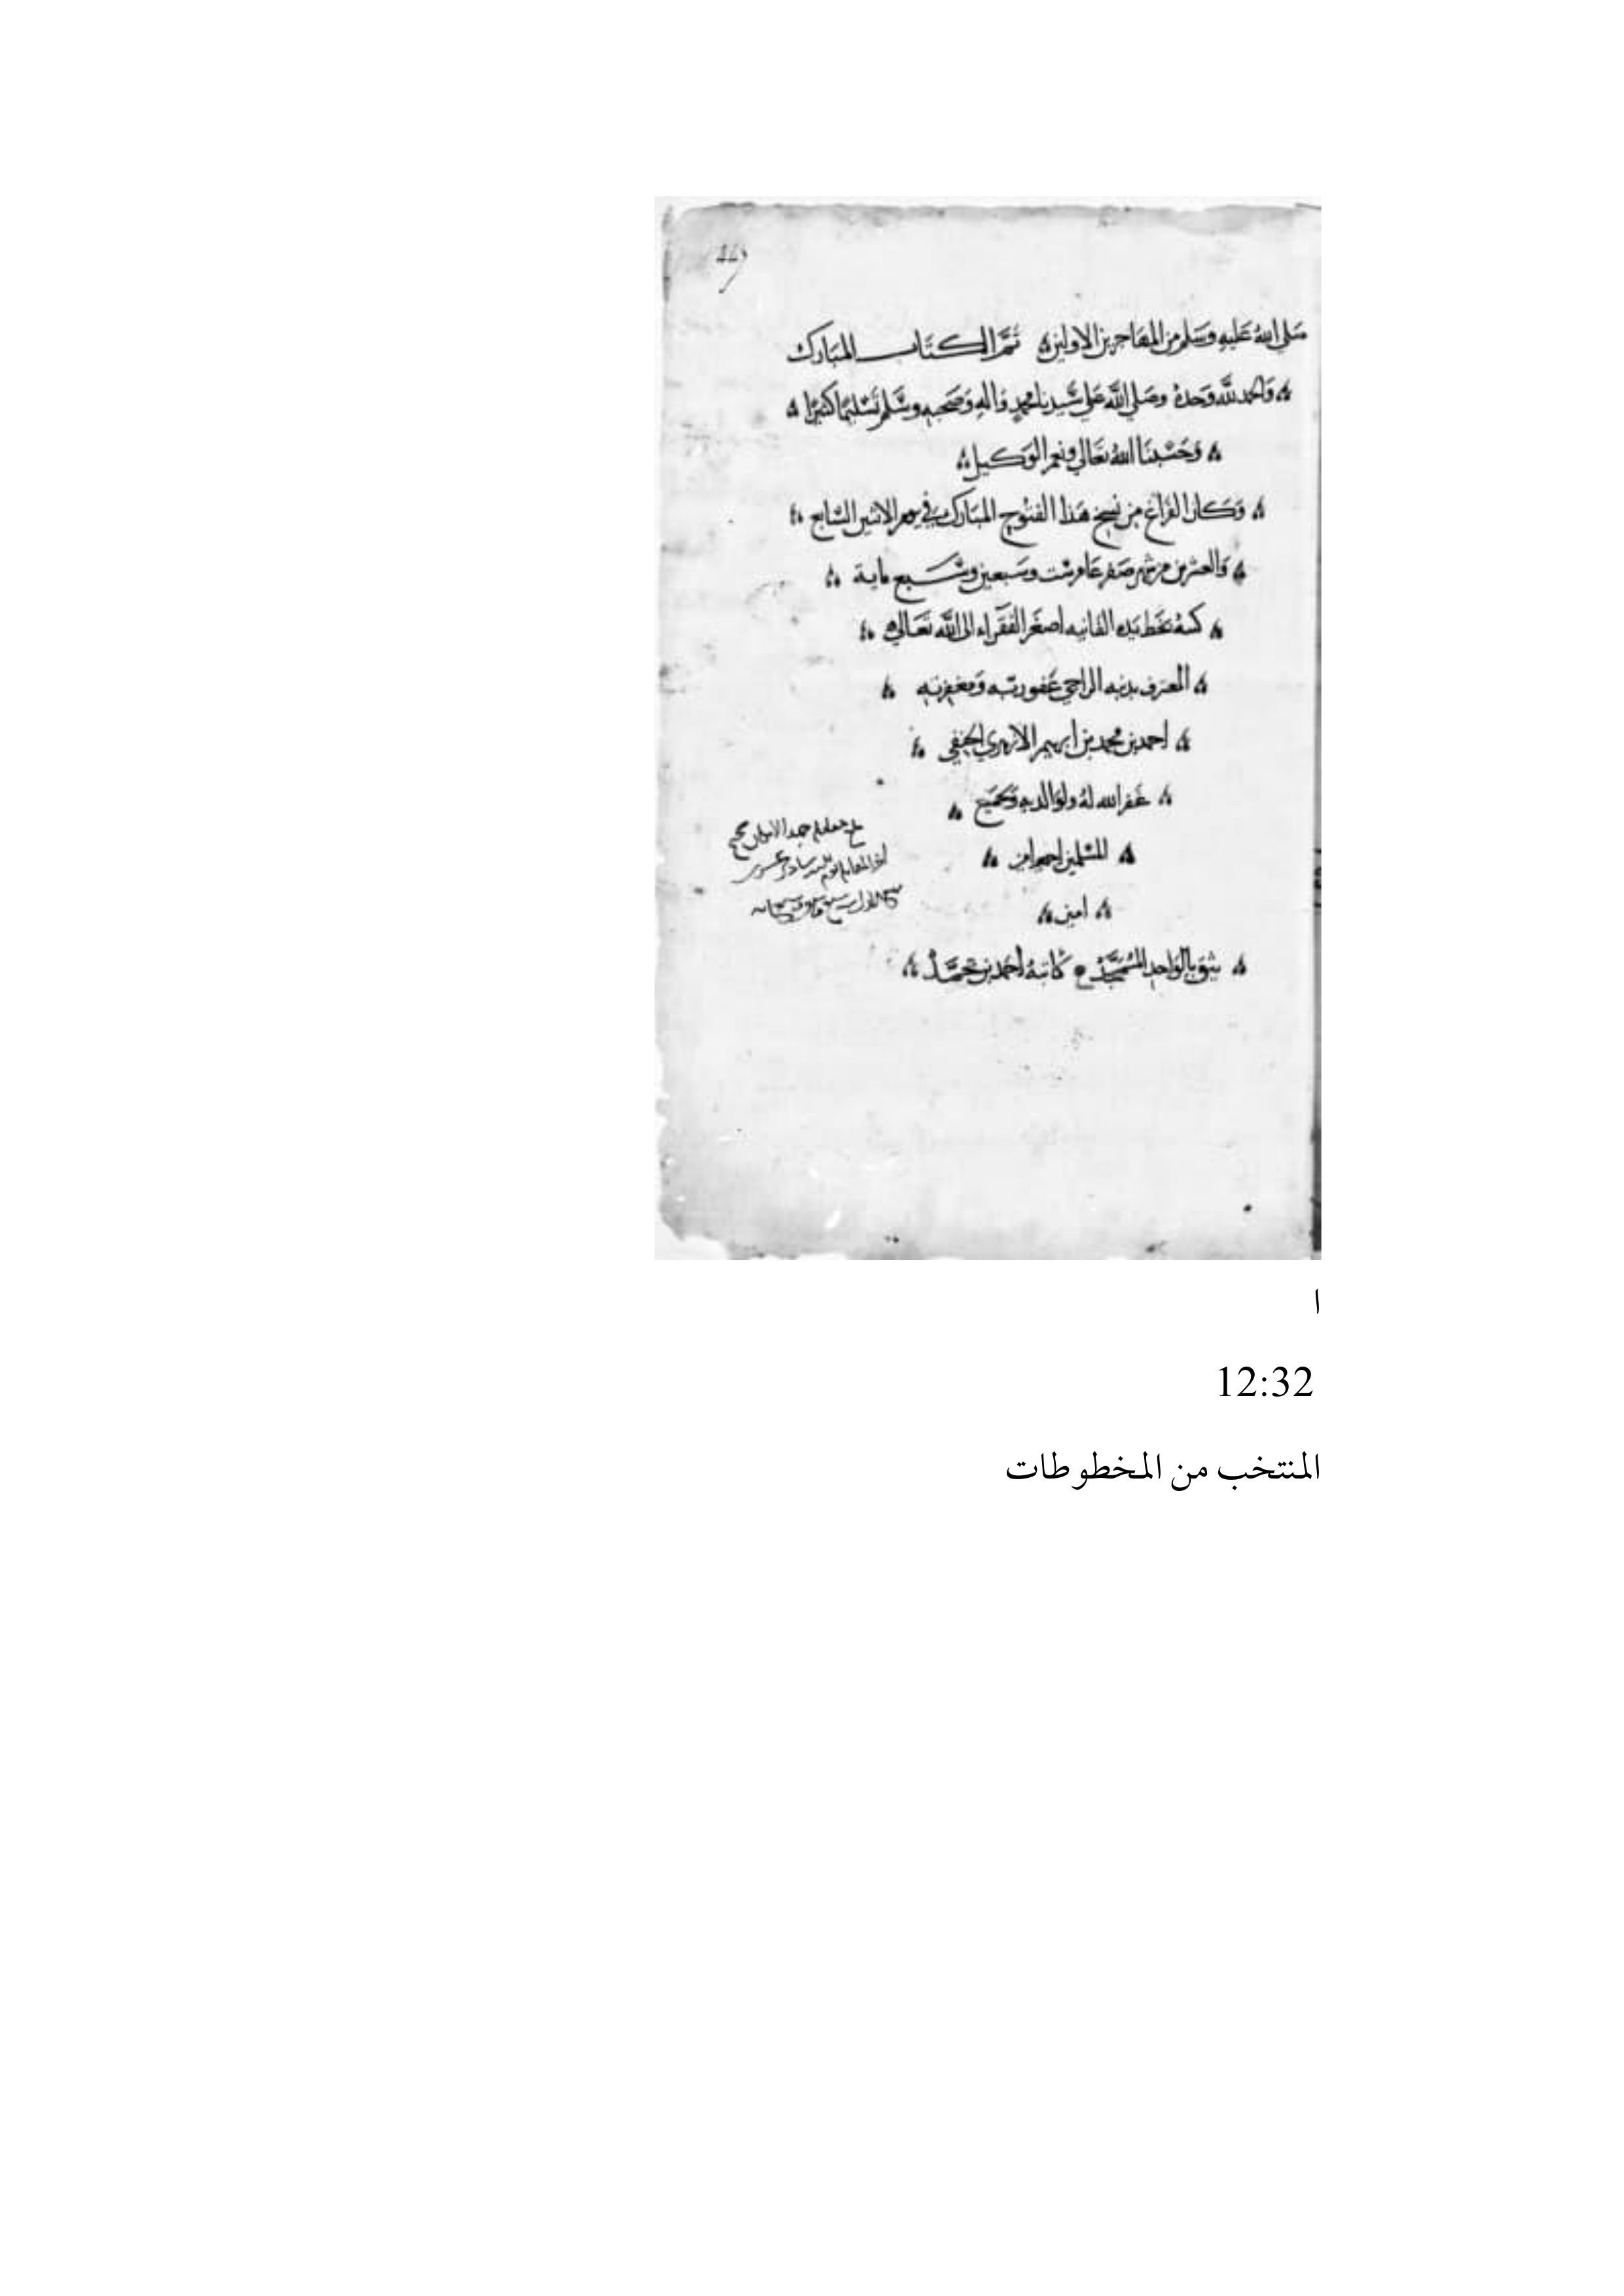 صلي الله عليه وسلم من المهاجرين الاولين تم الكتاب المبارك
والحمد لله وحده وصلي الله علي سيدنا محمد واله وصحبه وسلم تسليما كثيرا
وحسبنا الله تعالي ونعم الوكيل
وكان الفراغ من نسخ هذا الفتوح المبارك في يوم الاثنين السابع
والعشرين من شهر صفر عام ست وسبعين وسبع ماية
كتبه بخط يده الفانيه اصغر الفقراء الى الله تعالي
المعترف بذنبه الراجي عفو ربه ومغفرته
احمد بن محمد بن ابرهيم الازهري الحنفي
غفر الله له ولوالديه ولجميع
المسلمين اجمعين
امين
يثق بالواحد كاتبه احمد بن محمد
ا
12:32
المنتخب من المخطوطات